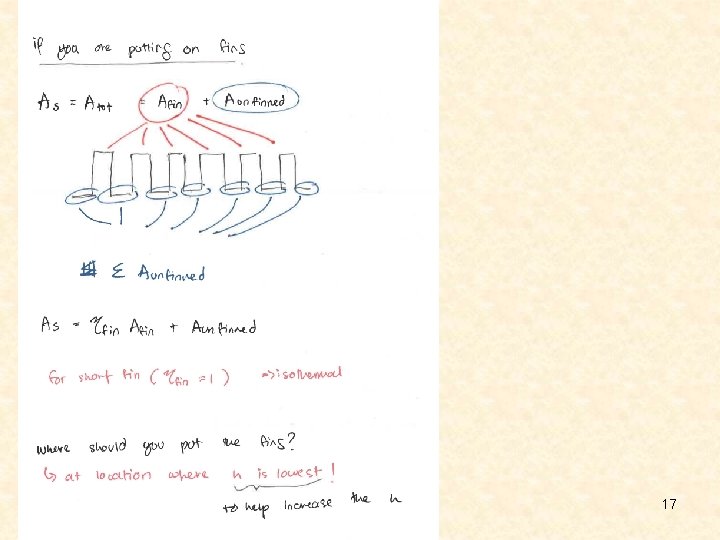 if you are putting on fins
As = Atot = Afin + Aunfinned
Σ Aunfinned
As = ηfin Afin + Aunfinned
for short fin (ηfin = 1) => isothermal
where should you put the fins?
↳ at location where h is lowest!
to help increase the h
17